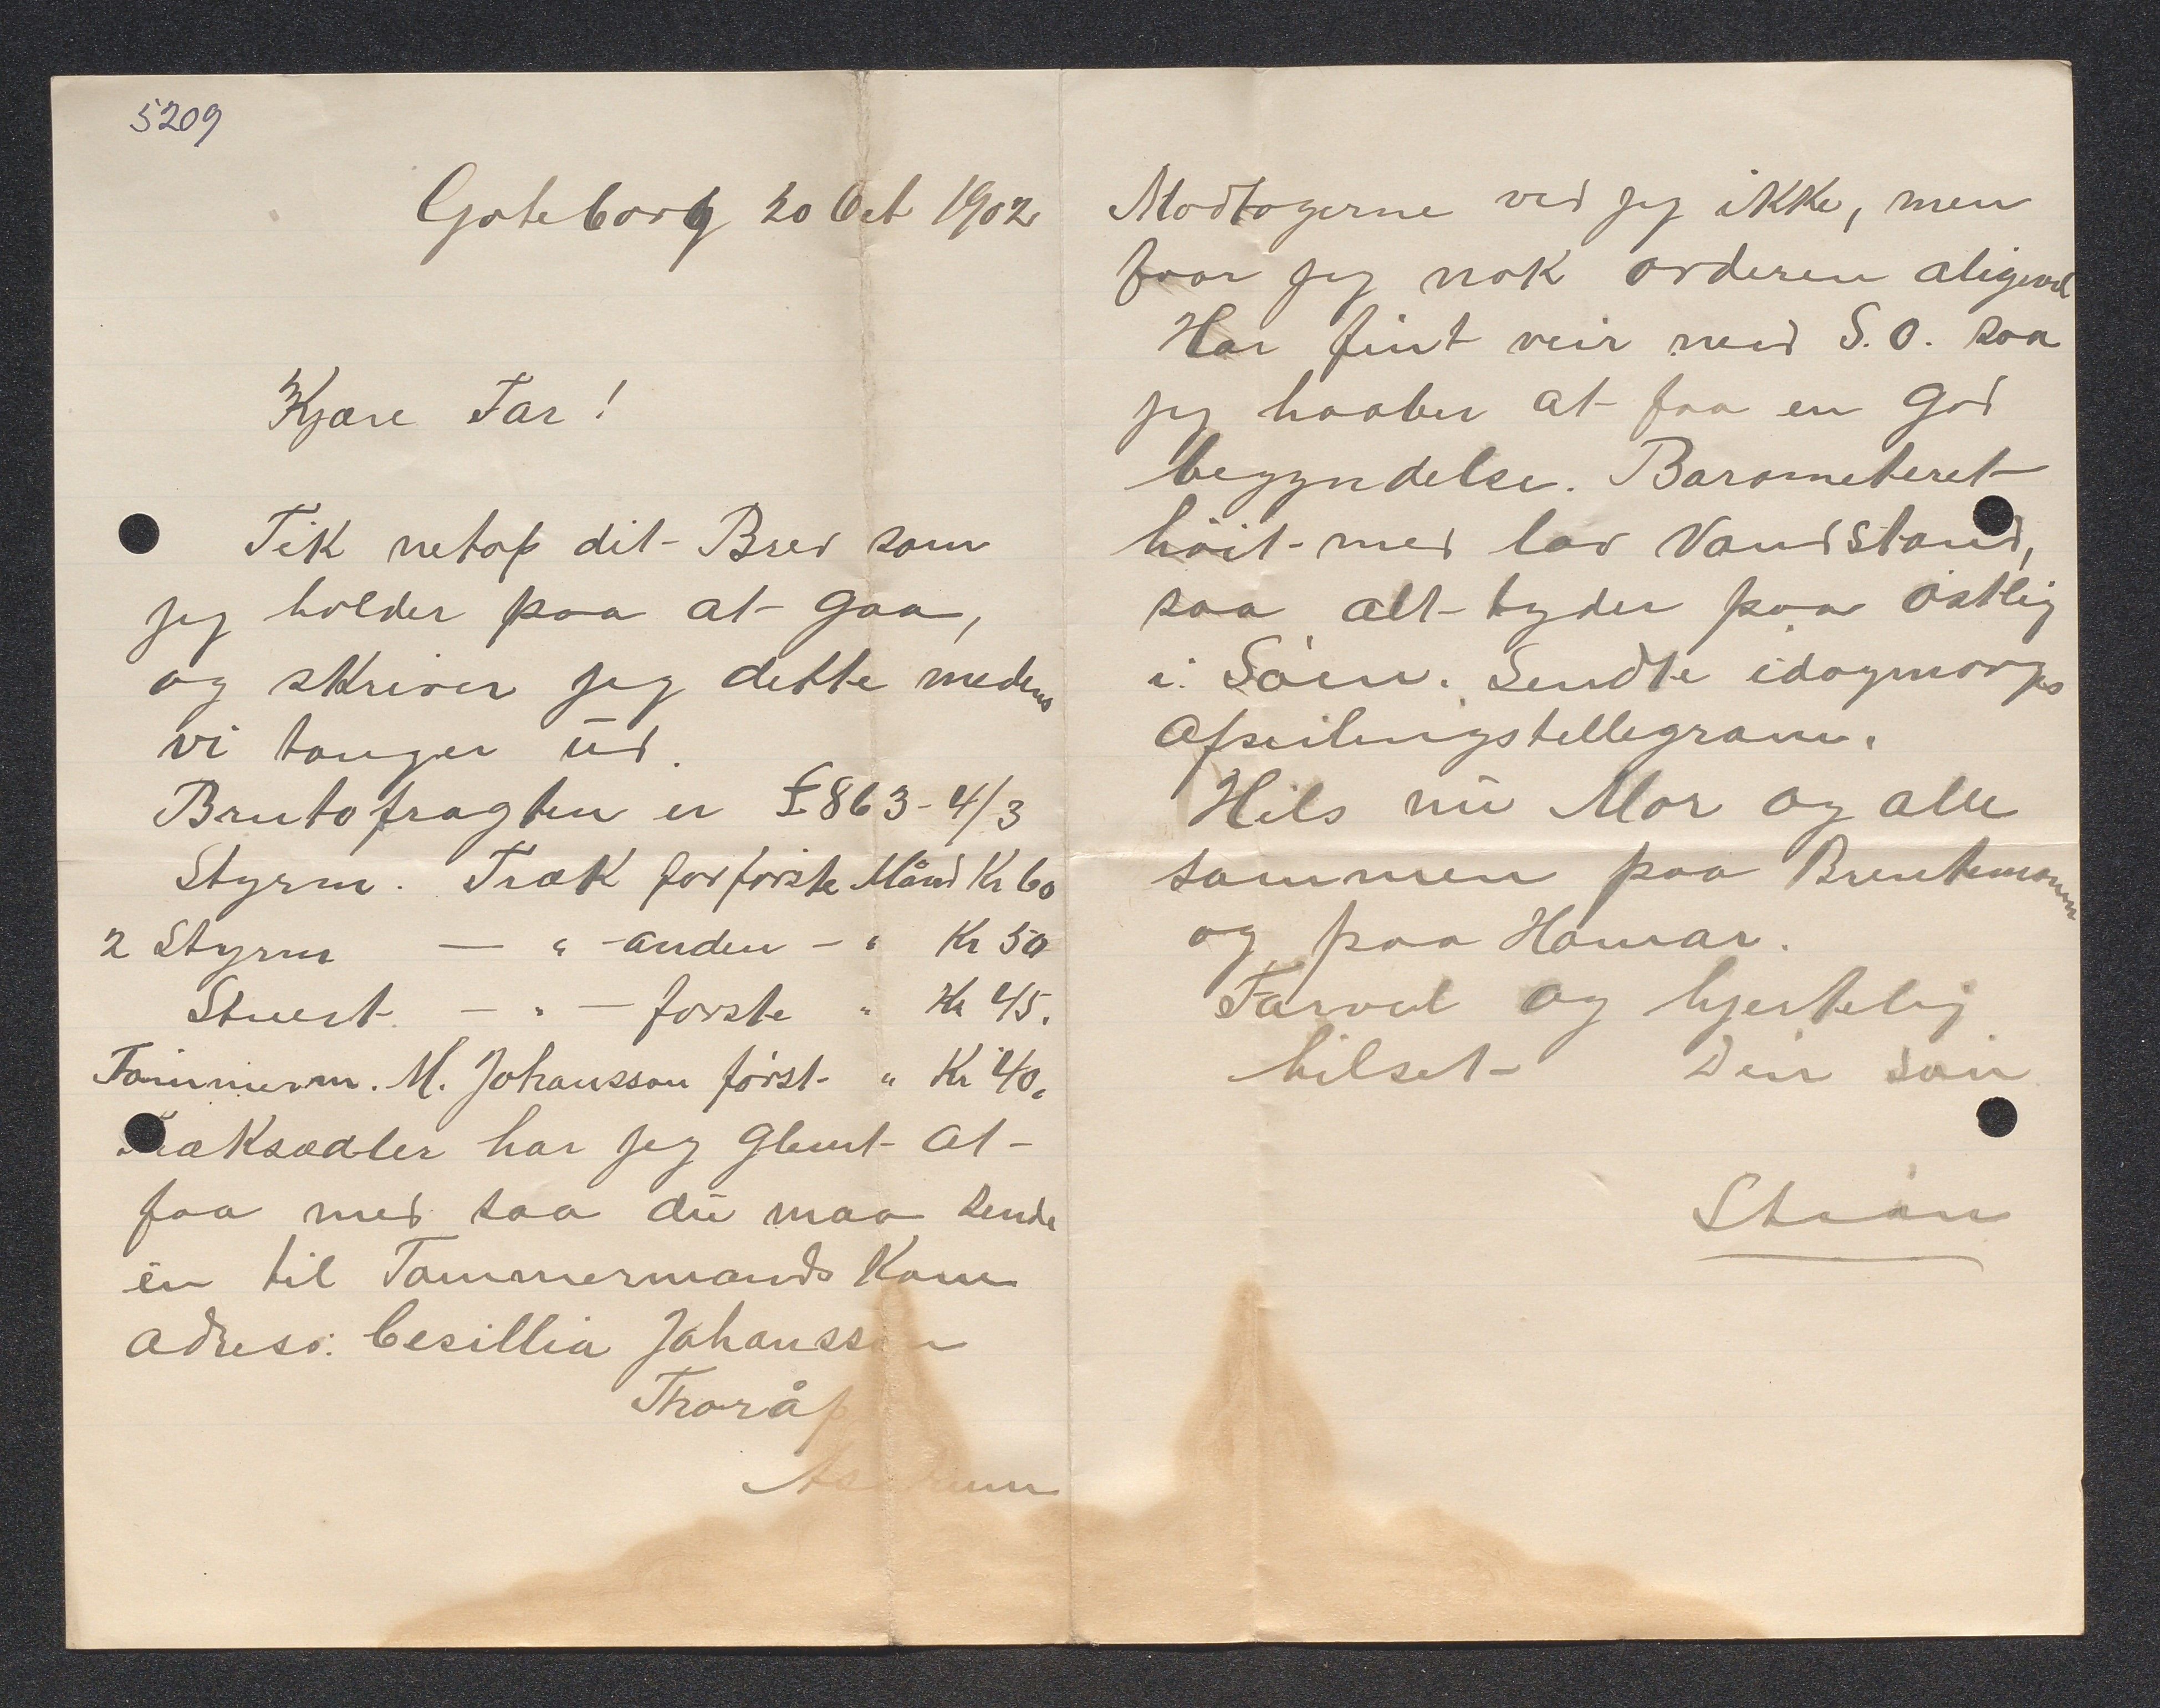 5209
Goteborg 20 Oct 1902
Kjære Far!
Fik netop dit Brev som
jeg holder paa at gaa,
og skriver jeg dette medens
vi tauger ud.
Brutofragten er £863-4/3
Styrm. Træk for første Måned Kr 60
2 Styrm — " - anden - " Kr 50
Stuert - " - første " Kr 45.
Tømmerm. M. Johansson først - " Kr 40.
Træksædler har jeg glemt at
faa med saa du maa sende
en til Tømmermands Kone
adress: Cesillia Johansson
Thoråp
Modtagerne ved jeg ikke, men
faar jeg nok orderen aligevel
Har fint veir med S.O. saa
jeg haaber at faa en god
begyndelse. Barometeret
höit med lav Vandstand,
saa alt tyder paa østlig
i Søen. Sendte idagmorges
afseilingstellegram.
Hils nu Mor og alle
sammen paa Brentemoen
og paa Homar.
Farvel og hjertelig
hilset Din søn